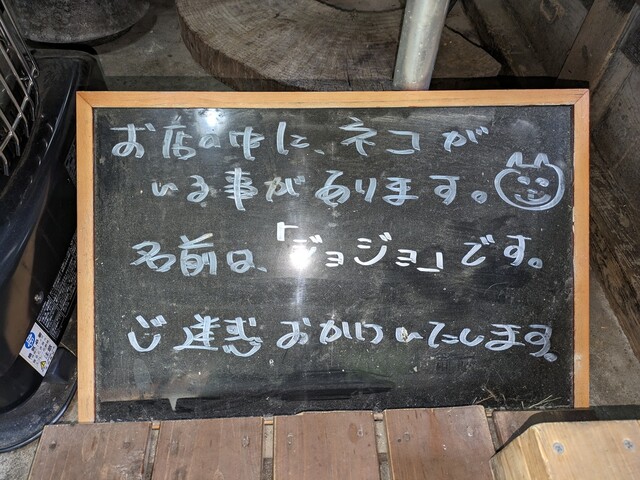 お店の中に、ネコが
いる事があります。
名前は、「ジョジョ」です。
ご迷惑おかけいたします。